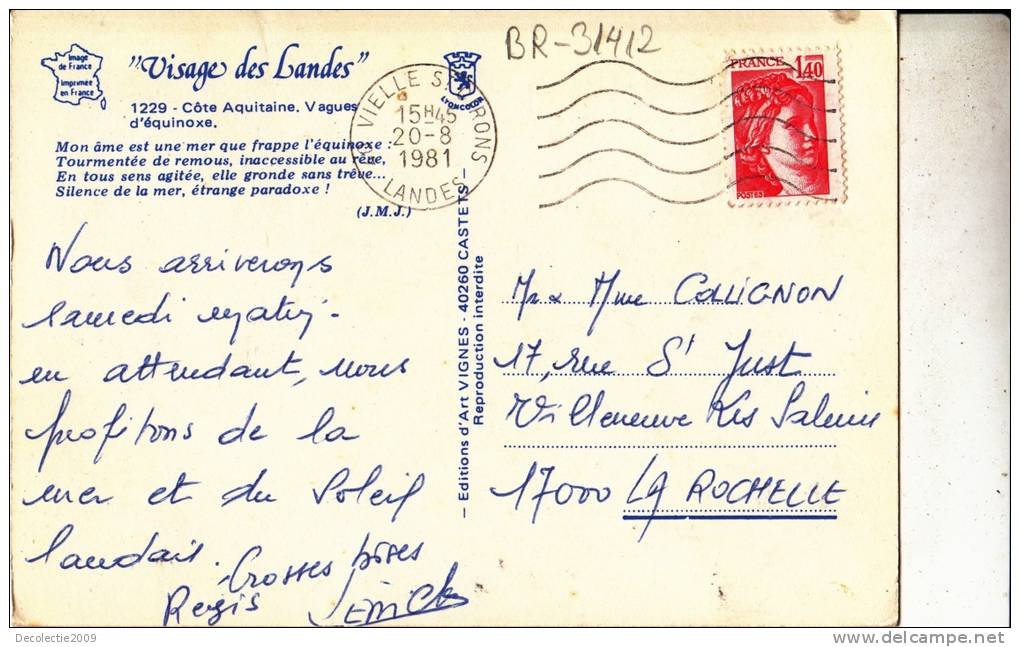 BR-31412
Image
de France
Imprimée
en France
"Visage des Landes"
LYONCOLOR
1229 - Côte Aquitaine. Vagues
d'équinoxe.
Mon âme est une mer que frappe l'équinoxe :
Tourmentée de remous, inaccessible au rêve,
En tous sens agitée, elle gronde sans trêve...
Silence de la mer, étrange paradoxe !
(J.M.J.)
VIELLE S GIRONS
15H45
20-8
1981
LANDES
FRANCE
1,40
POSTES
Nous arriverons
samedi matin.
en attendant, nous
profitons de la
mer et du soleil
landais.
Grosses bises
Regis
— Editions d'Art VIGNES - 40260 CASTETS —
Reproduction interdite
Mr & Mme COLLIGNON
17, rue St Just
Villeneuve les Salines
17000 LA ROCHELLE
Decolectie2009
www.delcampe.net